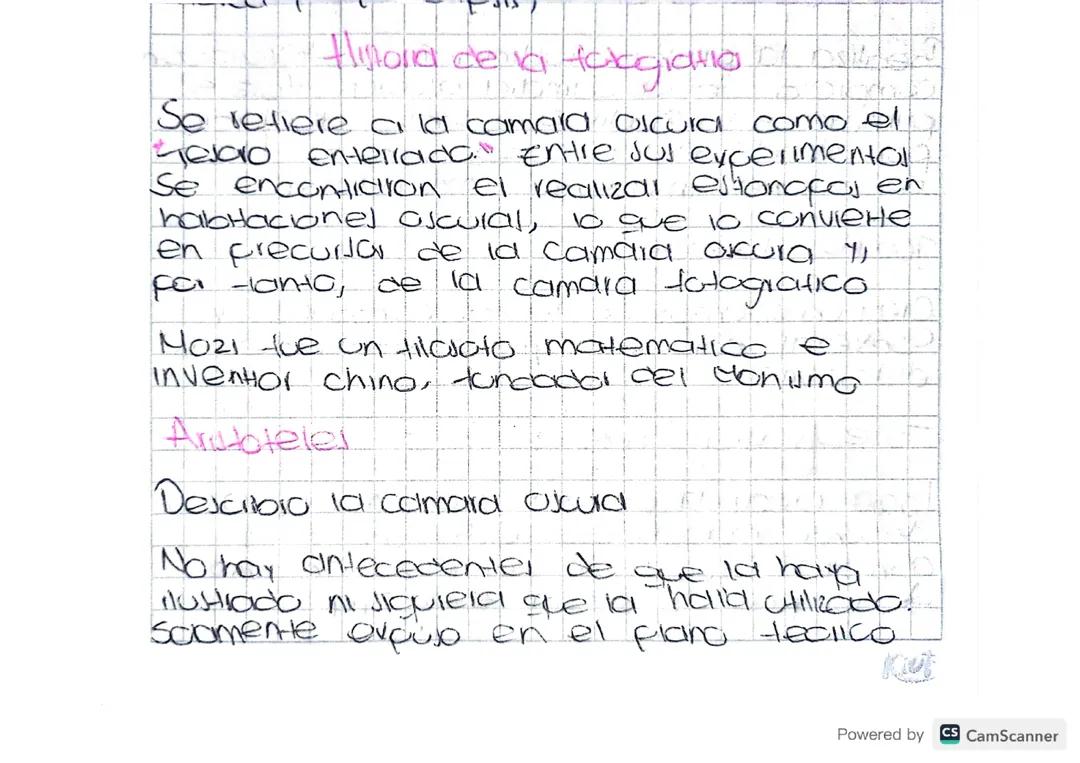 Historia de la fotografia
Se refiere a la camara oscura como el
"tesoro enterrado." Entre sus experimentos
se encontraron el realizar estenopos en
habitaciones oscuras, lo que lo convierte
en precursor de la camara oscura y,
por tanto, de la camara fotografico
Mozi fue un filosofo matematico e
inventor chino, fundador del
Aristoteles
Describio la camara oscura
No hay antecedentes de que la haya
ilustrado ni siquiera que la halla utilizado.
solamente expuso en el plano teorico
Powered by CS CamScanner